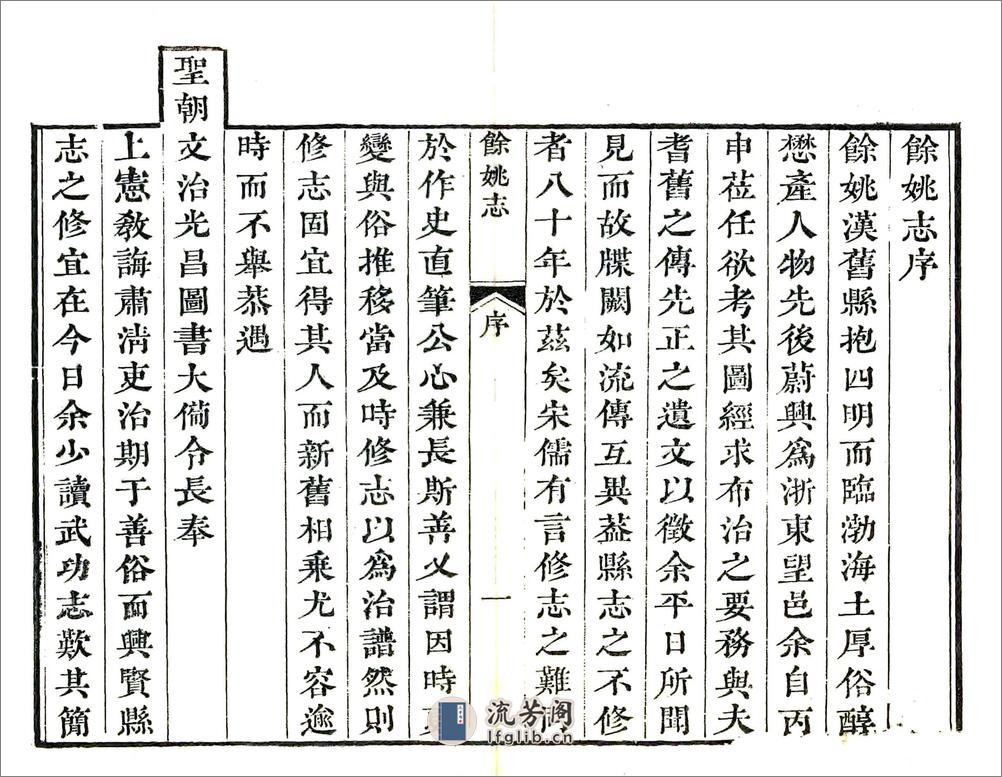 餘姚志序
餘姚漢舊縣抱四明而臨渤海土厚俗醇
懋產人物先後蔚興爲浙東望邑余自丙
申莅任欲考其圖經求布治之要務與夫
耆舊之傳先正之遺文以徵余平日所聞
見而故牒闕如流傳互異葢縣志之不修
者八十年於茲矣宋儒有言修志之難
餘姚志
序
一
於作史直筆公心兼長斯善乂謂因時
變與俗推移當及時修志以爲治譜然則
修志固宜得其人而新舊相乘尤不容逾
時而不舉恭遇
聖朝文治光昌圖書大僃令長奉
上憲敎誨肅淸吏治期于善俗而興賢縣
志之修宜在今日余少讀武功志歎其簡
流芳阁
lfglib.cn